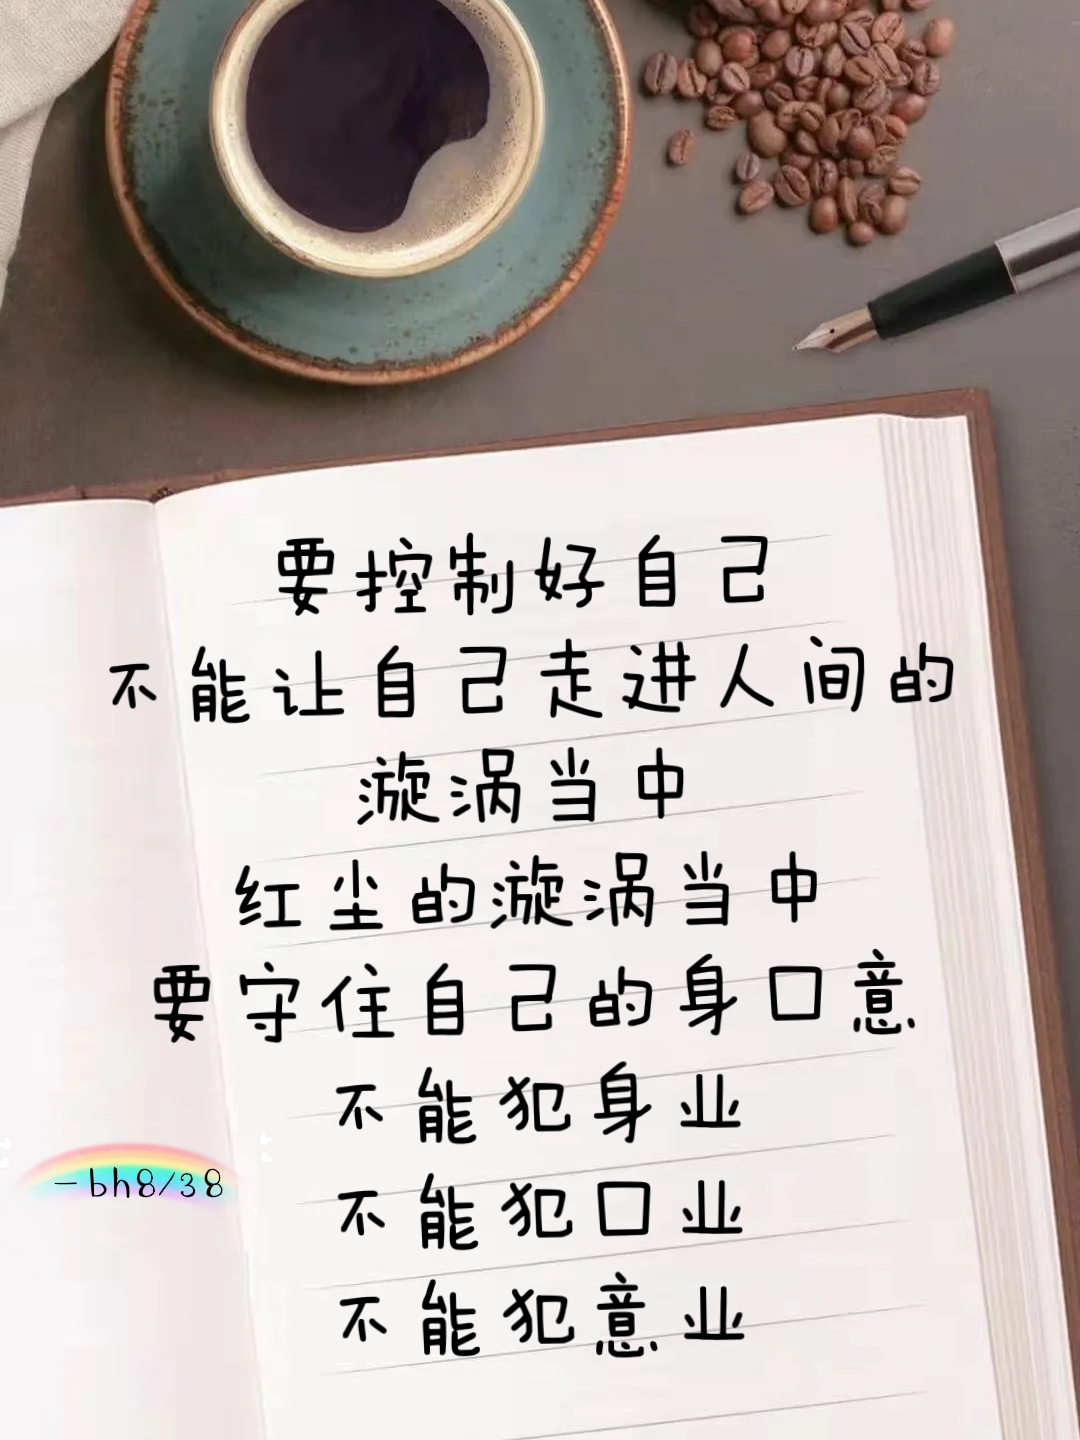 要控制好自己
不能让自己走进人间的
漩涡当中
红尘的漩涡当中
要守住自己的身口意
不能犯身业
一bh8/38
不能犯口业
不能犯意业